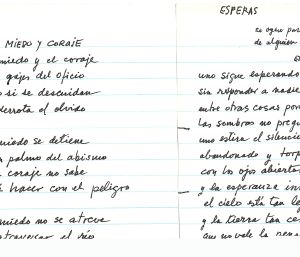 MIEDO Y CORAJE
miedo y el coraje
gajes del oficio
si se descuidan
derrota el olvido
miedo se detiene
palmo del abismo
coraje no sabe
hacer con el peligro
miedo no se atreve
atravesar el río
ESPERAS
de alguien
uno sigue esperando
sin responder a nadie
entre otras cosas por
las sombras no pregu
uno estira el silencio
abandonado y torp
con los ojos abierto
y la esperanza in
el cielo está tan le
y la tierra tan ce
que no vale la pena